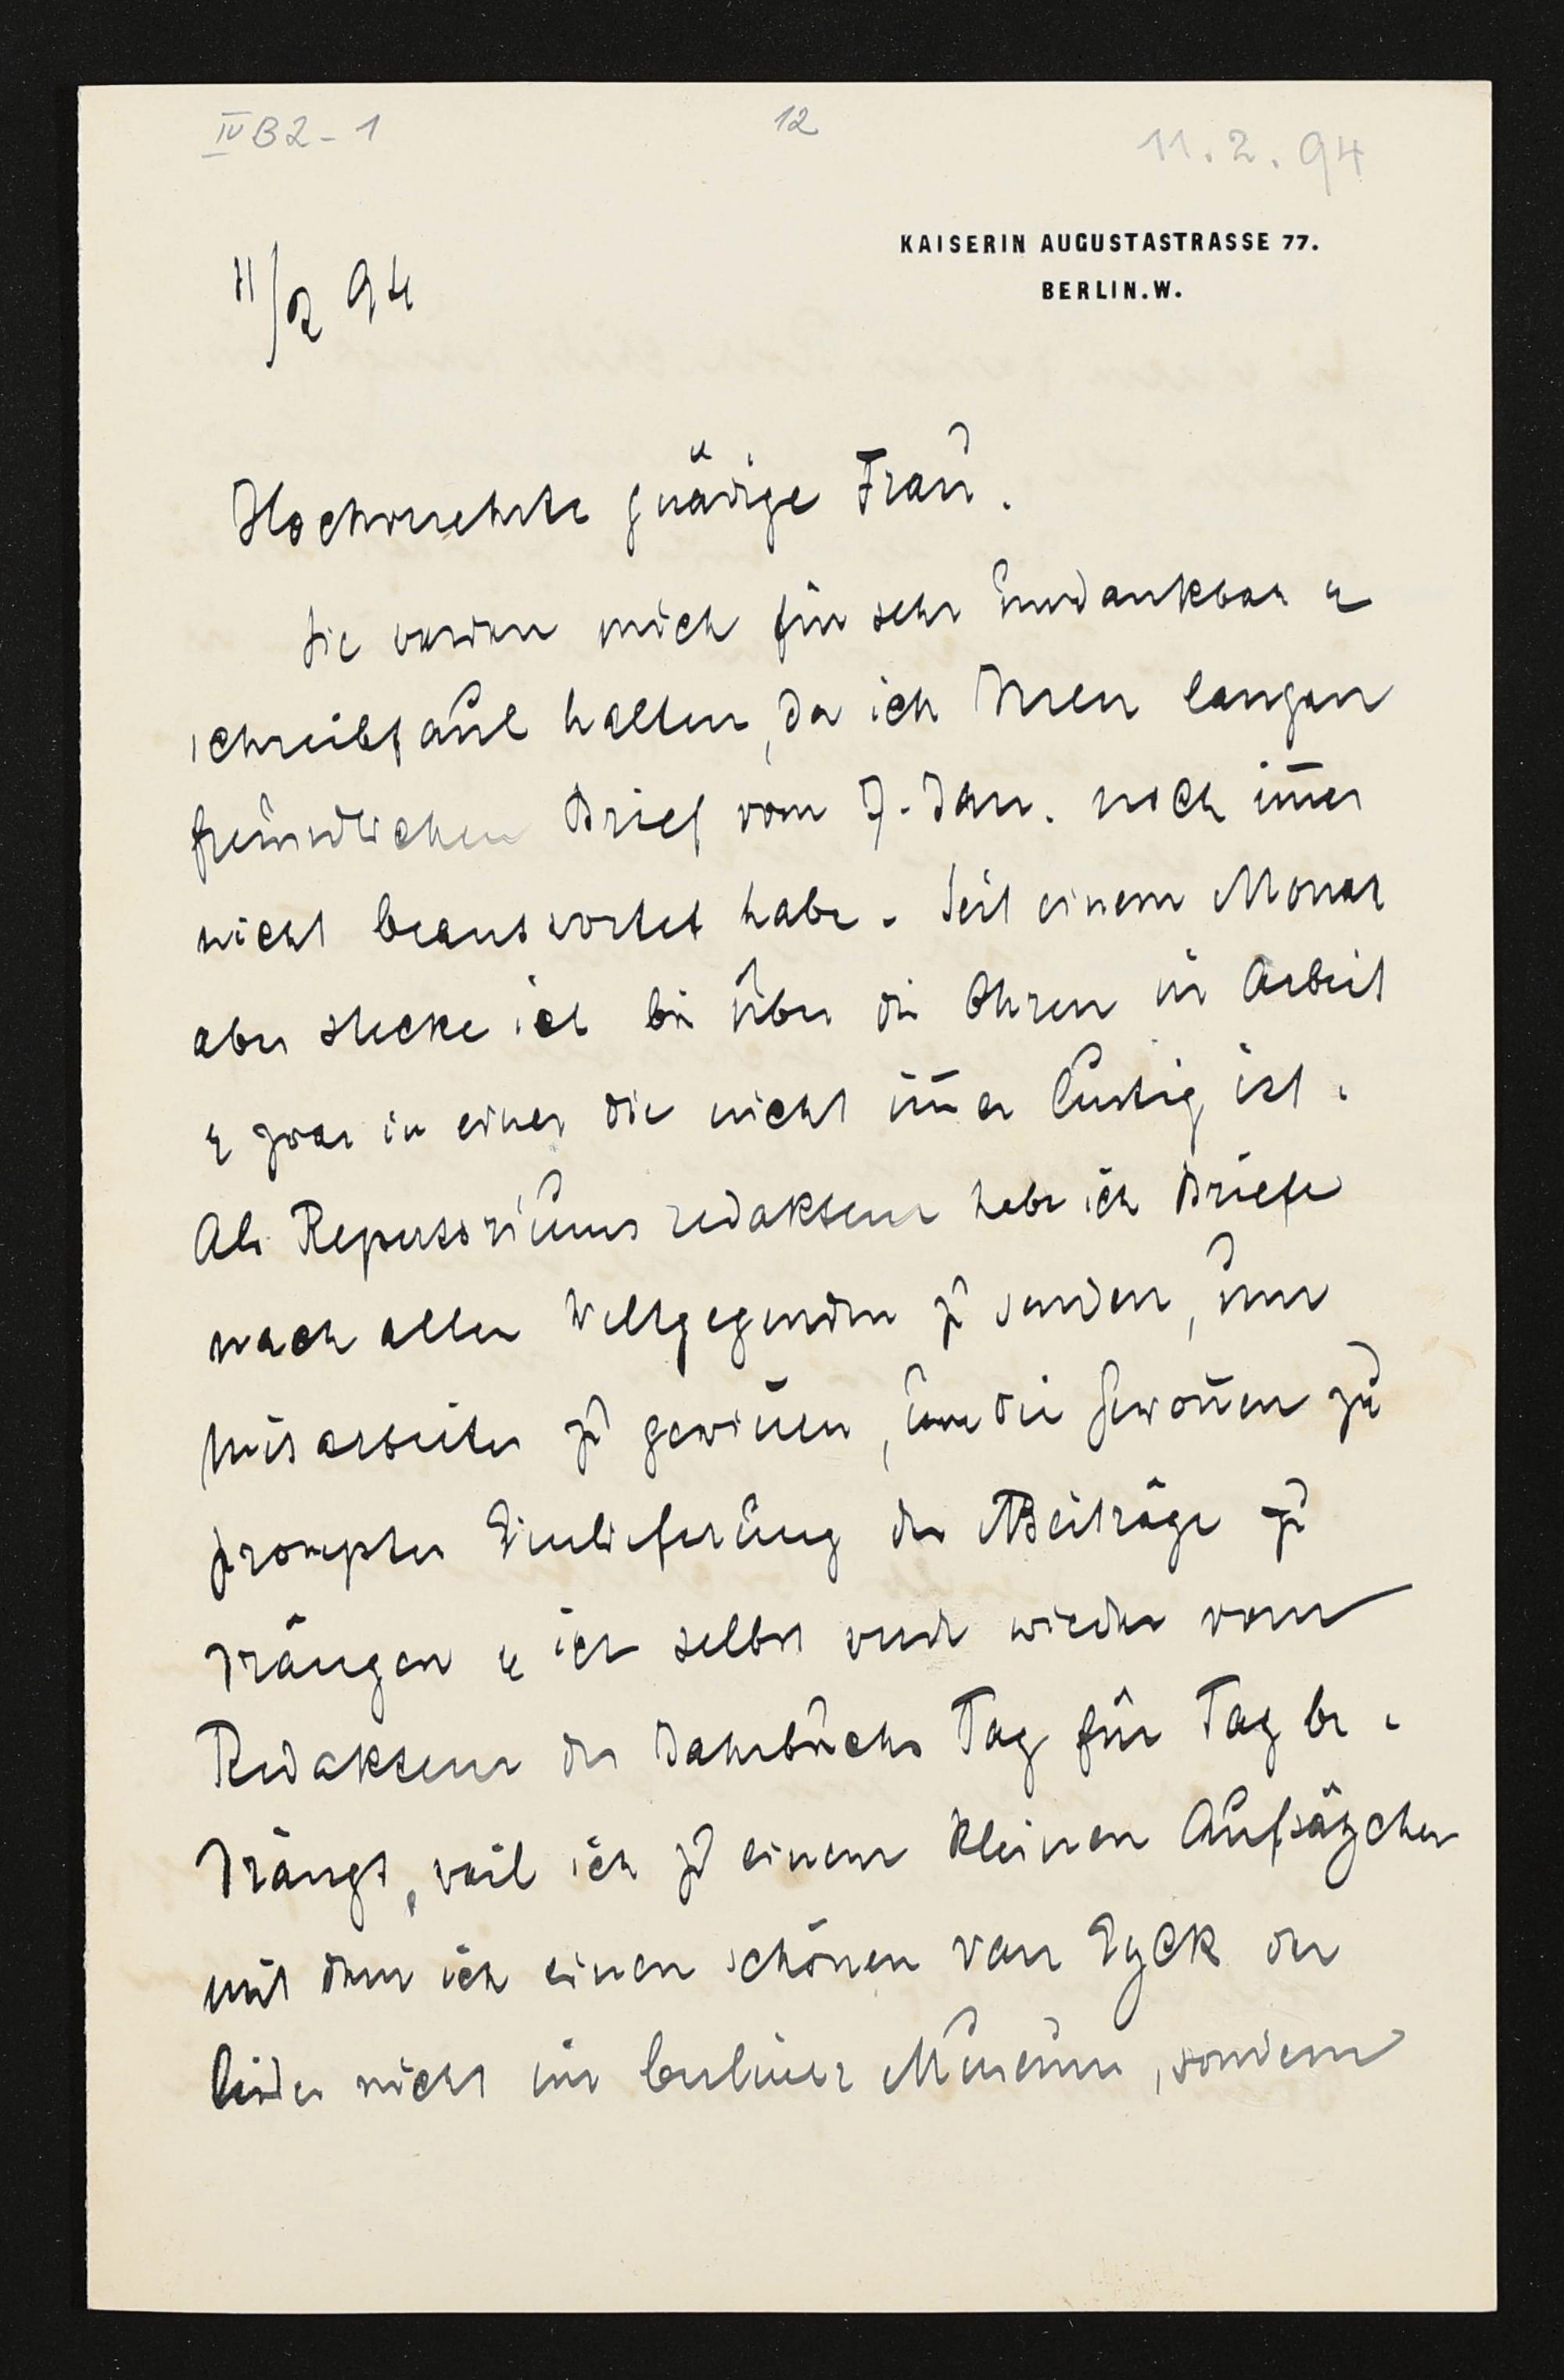 IV B2-1
12
11.2.94
KAISERIN AUGUSTASTRASSE 77.
BERLIN.W.
11/2 94
Hochverehrte gnädige Frau.
Sie werden mich für sehr undankbar &
schreibfaul halten, da ich Ihren langen
freundlichen Brief vom 7. Jan. noch im̅er
nicht beantwortet habe. Seit einem Monat
aber stecke ich bis über die Ohren in Arbeit
& zwar in einer die nicht im̅er lustig ist.
Als Repertoriums redakteur habe ich Briefe
nach allen Weltgegenden zu senden, um
Mitarbeiter zu gewin̅en, um die Gewon̅en zu
prompter Einlieferung der Beiträge zu
drängen & ich selbst werde wieder vom
Redakteur des Jahrbuchs Tag für Tag be-
drängt, weil ich zu einem kleinen Aufsätzchen
mit dem ich einen schönen van Eyck der
leider nicht im berliner Museum, sondern